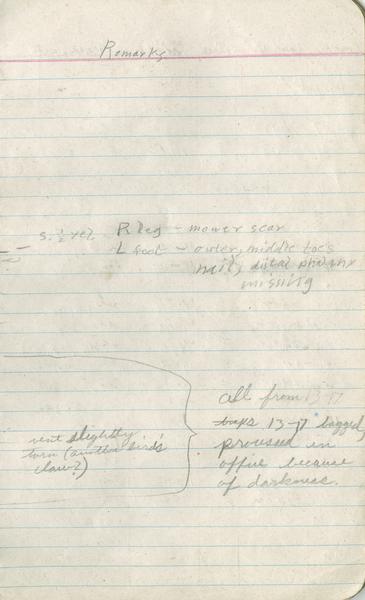 Remarks
R leg - mower scar
L foot - outer, middle toe's
nail, distal phalanx
missing
all from 13-17
traps 13-17 tagged,
vent slightly
torn (another bird's
claw?)
processed in
office because
of darkness.